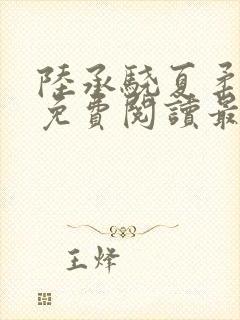 陸承驍夏矛
免費閱讀最
王烽